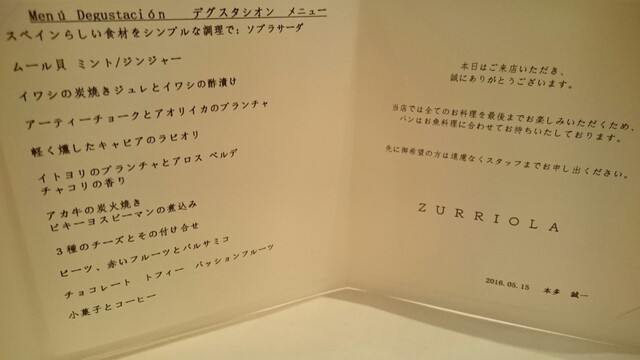 Menú Degustación　デグスタシオン　メニュー
スペインらしい食材をシンプルな調理で; ソブラサーダ
ムール貝 ミント/ジンジャー
イワシの炭焼きジュレとイワシの酢漬け
アーティーチョークとアオリイカのプランチャ
軽く燻したキャビアのラビオリ
イトヨリのプランチャとアロス ベルデ
チャコリの香り
アカ牛の炭火焼き
ピキーヨスピーマンの煮込み
3種のチーズとその付け合せ
ビーツ、赤いフルーツとバルサミコ
チョコレート　トフィー　パッションフルーツ
小菓子とコーヒー
本日はご来店いただき、
誠にありがとうございます。
当店では全てのお料理を最後までお楽しみいただくため、
パンはお魚料理に合わせてお持ちいたしております。
先に御希望の方は遠慮なくスタッフまでお申し出ください。
ZURRIOLA
2016.05.15　本多　誠一